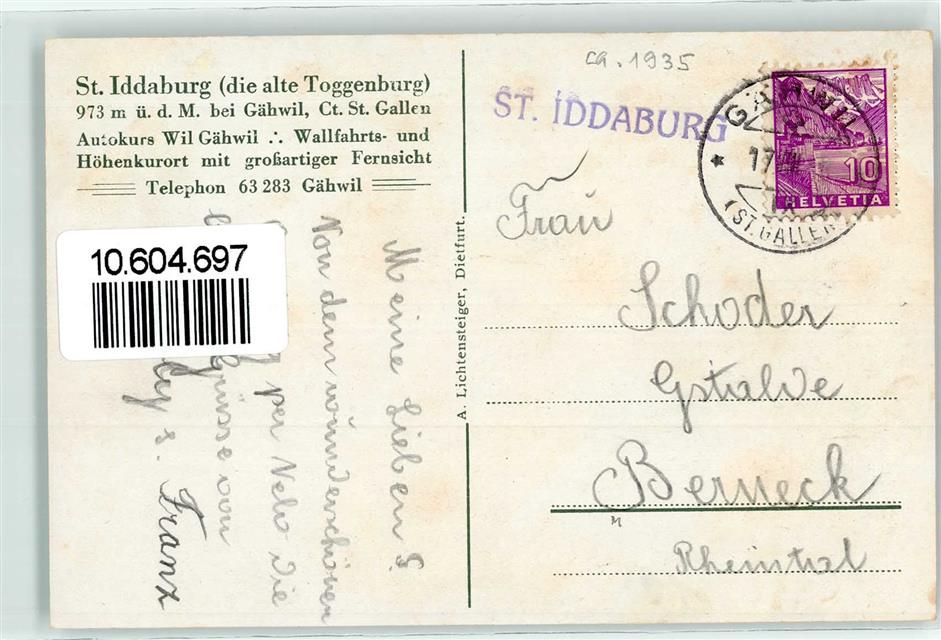 St. Iddaburg (die alte Toggenburg)
973 m ü. d. M. bei Gähwil, Ct. St. Gallen
Autokurs Wil Gähwil ∴ Wallfahrts- und
Höhenkurort mit großartiger Fernsicht
Telephon 63 283 Gähwil
10.604.697
Meine Lieben!
Von dem wunderschönen
per Velo die
Grüsse von
s. Franz
A. Lichtensteiger, Dietfurt.
ca. 1935
ST. IDDABURG
GÄHWIL
(ST. GALLEN)
10
HELVETIA
Frau
Schoder
Gstalde
Berneck
Rheintal